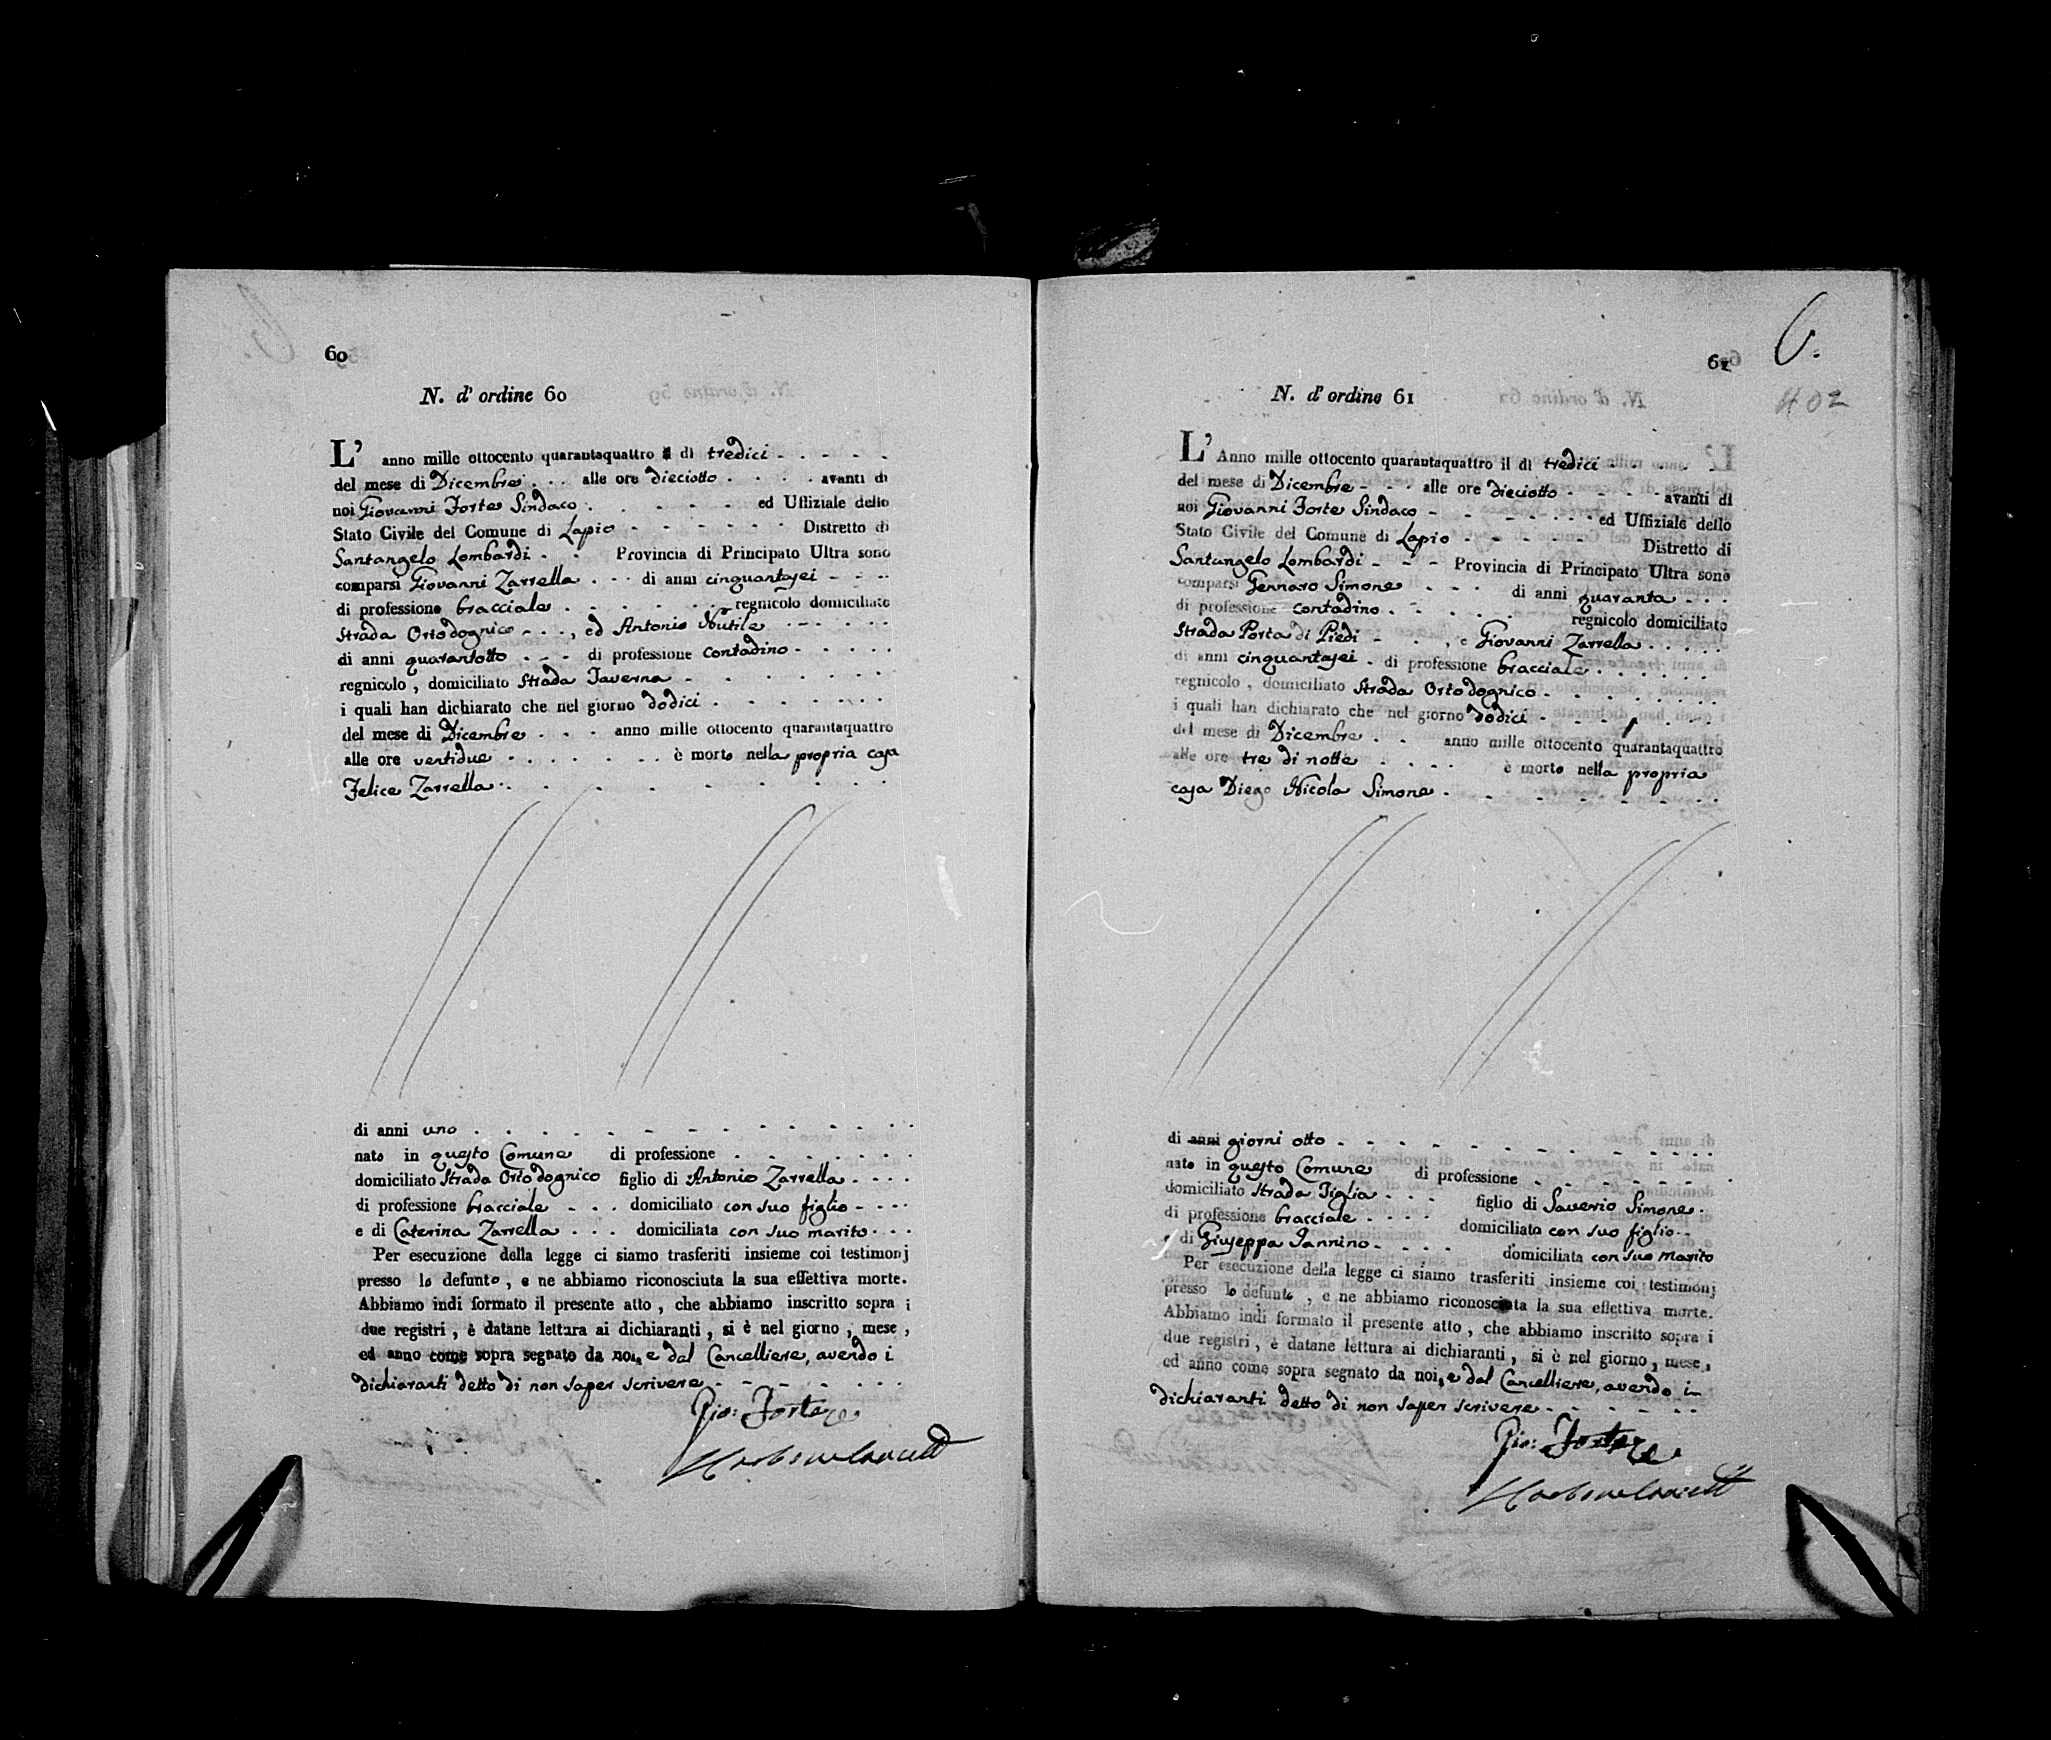 60
N. d' ordine 60
L' anno mille ottocento quarantaquattro il di tredici
del mese di Dicembre alle ore dieciotto avanti di
noi Giovanni Forte Sindaco ed Uffiziale dello
Stato Civile del Comune di Lapio Distretto di
Santangelo Lombardi Provincia di Principato Ultra sono
comparsi Giovanni Zarrella di anni cinquantasei
di professione bracciale regnicolo domiciliato
Strada Ortodognico , ed Antonio Nutile
di anni quarantotto di professione contadino
regnicolo , domiciliato Strada Taverna
i quali han dichiarato che nel giorno dodici
del mese di Dicembre anno mille ottocento quarantaquattro
alle ore ventidue è morto nella propria casa
Felice Zarrella
di anni uno
nato in questo Comune di professione
domiciliato Strada Ortodognico figlio di Antonio Zarrella
di professione bracciale domiciliato con suo figlio
e di Caterina Zarrella domiciliata con suo marito
Per esecuzione della legge ci siamo trasferiti insieme coi testimonj
presso lo defunto , e ne abbiamo riconosciuta la sua effettiva morte.
Abbiamo indi formato il presente atto , che abbiamo inscritto sopra i
due registri , è datane lettura ai dichiaranti , si è nel giorno , mese ,
ed anno come sopra segnato da noi, e dal Cancelliere, avendo i
dichiaranti detto di non saper scrivere
Gio: Forte
6.
61
402
N. d' ordine 61
L' Anno mille ottocento quarantaquattro il di tredici
del mese di Dicembre alle ore dieciotto avanti di
noi Giovanni Forte Sindaco ed Uffiziale dello
Stato Civile del Comune di Lapio Distretto di
Santangelo Lombardi Provincia di Principato Ultra sono
comparsi Gennaro Simone di anni quaranta
di professione contadino regnicolo domiciliato
Strada Porta di Piedi , e Giovanni Zarrella
di anni cinquantasei di professione bracciale
regnicolo , domiciliato Strada Ortodognico
i quali han dichiarato che nel giorno dodici
del mese di Dicembre anno mille ottocento quarantaquattro
alle ore tre di notte è morto nella propria
casa Diego Nicola Simone
di anni giorni otto
nato in questo Comune di professione
domiciliato Strada Tiglia figlio di Saverio Simone
di professione bracciale domiciliato con suo figlio
e di Giuseppa Iannino domiciliata con suo marito
Per esecuzione della legge ci siamo trasferiti insieme coi testimonj
presso lo defunto , e ne abbiamo riconosciuta la sua effettiva morte.
Abbiamo indi formato il presente atto , che abbiamo inscritto sopra i
due registri , è datane lettura ai dichiaranti , si è nel giorno , mese ,
ed anno come sopra segnato da noi, e dal Cancelliere, avendo i
dichiaranti detto di non saper scrivere
Gio: Forte